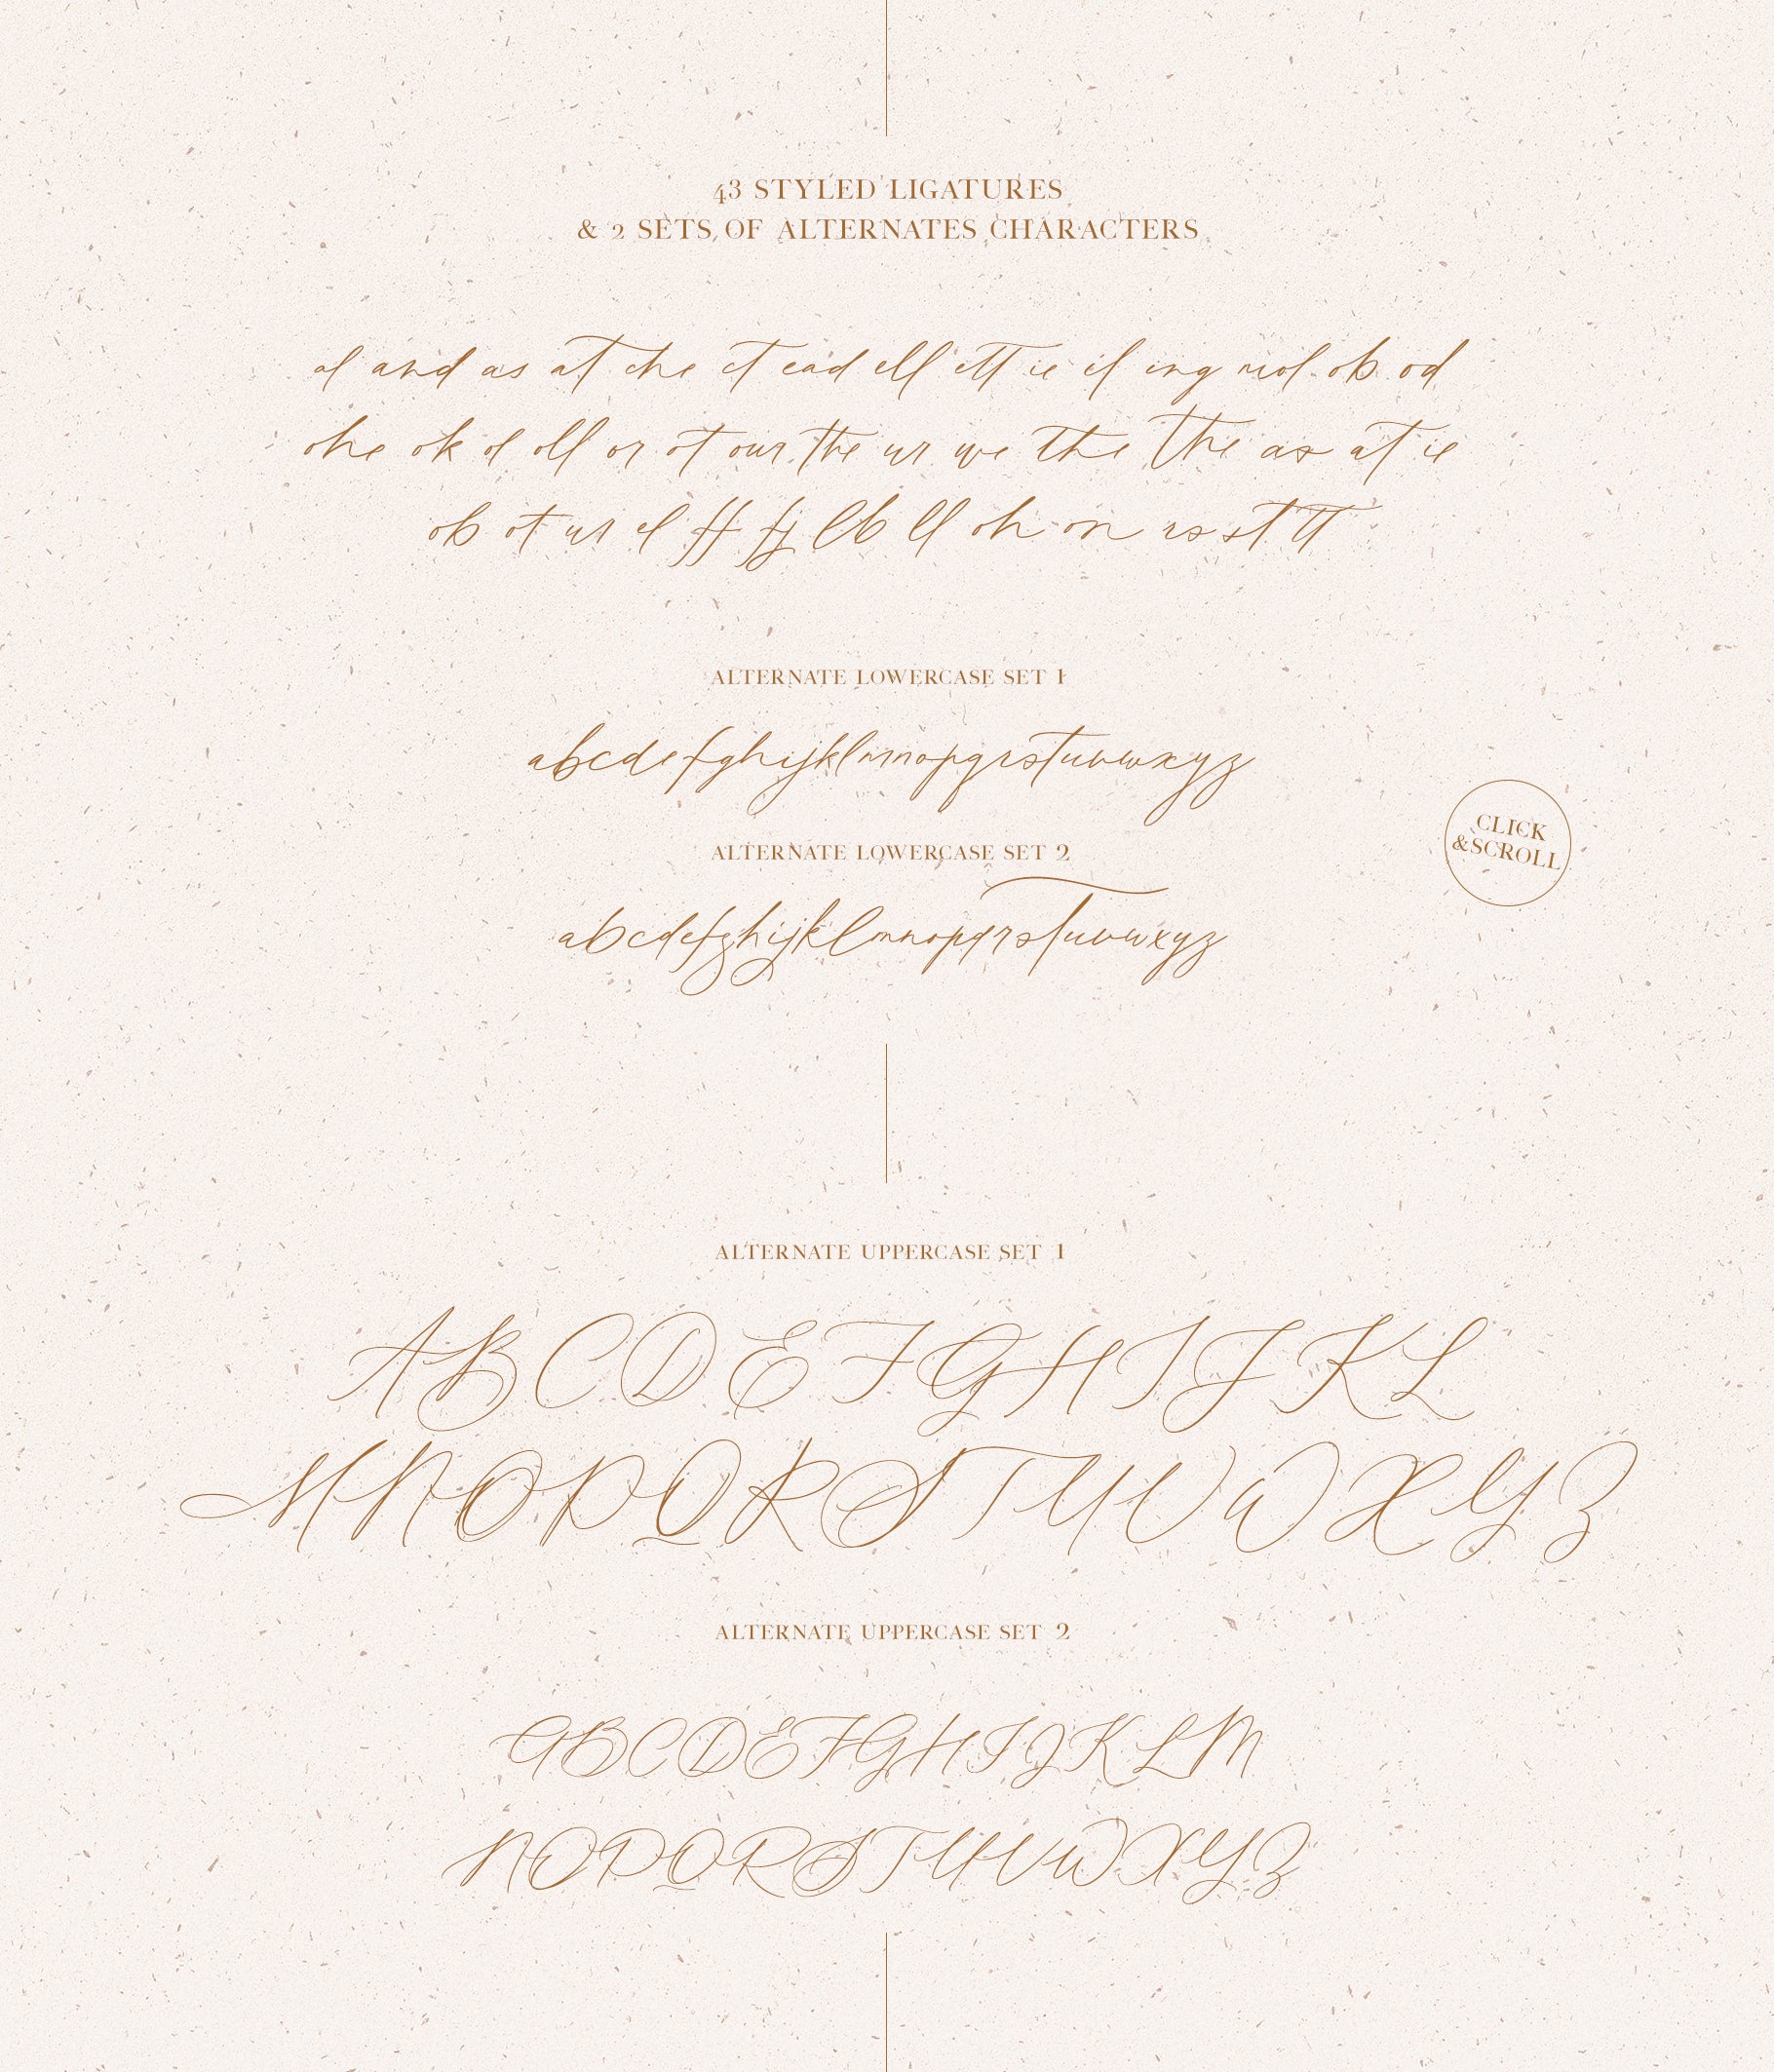 43 STYLED LIGATURES
& 2 SETS OF ALTERNATES CHARACTERS
and as at che ct ead ell ett ie il ing ob od
ohe ok ol oll or ot our the ur we the the as at ie
ob ot us el ff fj lb ll oh on rs st tt
ALTERNATE LOWERCASE SET 1
abcdefghijklmnopqrstuvwxyz
ALTERNATE LOWERCASE SET 2
abcdefghijklmnopqrstuvwxyz
CLICK
&SCROLL
ALTERNATE UPPERCASE SET 1
ABCDEFGHIJKL
MNOPQRSTUVWXYZ
ALTERNATE UPPERCASE SET 2
ABCDEFGHIJKLM
NOPQRSTUVWXYZ